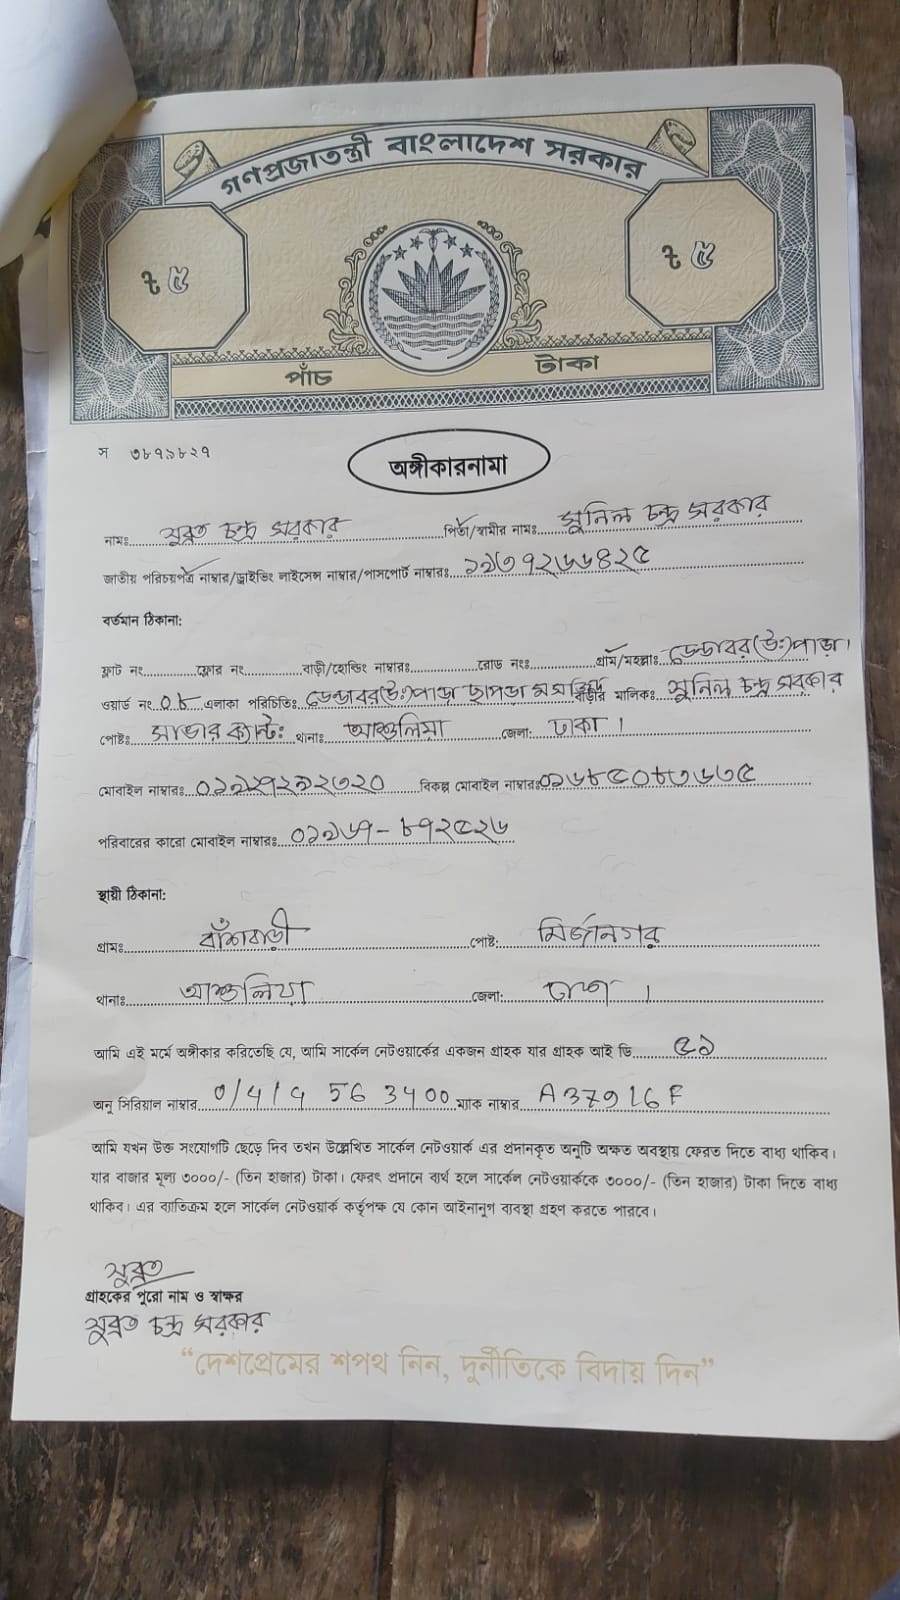 গণপ্রজাতন্ত্রী বাংলাদেশ সরকার
৳ ৫ ৳ ৫
পাঁচ টাকা
স ৩৮৭৯৮২৭
অঙ্গীকারনামা
নামঃ সুব্রত চন্দ্র সরকার পিতা/স্বামীর নামঃ সুনিল চন্দ্র সরকার
জাতীয় পরিচয়পত্র নাম্বার/ড্রাইভিং লাইসেন্স নাম্বার/পাসপোর্ট নাম্বারঃ ১৯৩৭২৬৬৪২৫
বর্তমান ঠিকানা:
ফ্লাট নং ফ্লোর নং বাড়ী/হোল্ডিং নাম্বারঃ রোড নংঃ গ্রাম/মহল্লাঃ ডেন্ডাবর(উঃ)পাড়া।
ওয়ার্ড নং ০৮ এলাকা পরিচিতিঃ ডেন্ডাবর(উঃ)পাড়া ছাপড়া মসজিদ বাড়ীর মালিকঃ সুনিল চন্দ্র সরকার
পোষ্টঃ সাভার ক্যান্টঃ থানাঃ আশুলিয়া জেলা: ঢাকা।
মোবাইল নাম্বারঃ বিকল্প মোবাইল নাম্বারঃ ০১৬৮৫০৮৩৬৩৫
পরিবারের কারো মোবাইল নাম্বারঃ ০১৯৬৭-৮৭২৫২৬
স্থায়ী ঠিকানা:
গ্রামঃ বাঁশবাড়ী পোষ্ট: মির্জানগর
থানাঃ আশুলিয়া জেলা: ঢাকা।
আমি এই মর্মে অঙ্গীকার করিতেছি যে, আমি সার্কেল নেটওয়ার্কের একজন গ্রাহক যার গ্রাহক আই ডি ৫৯
অনু সিরিয়াল নাম্বার ম্যাক নাম্বার A37916F
আমি যখন উক্ত সংযোগটি ছেড়ে দিব তখন উল্লেখিত সার্কেল নেটওয়ার্ক এর প্রদানকৃত অনুটি অক্ষত অবস্থায় ফেরত দিতে বাধ্য থাকিব।
যার বাজার মূল্য ৩০০০/- (তিন হাজার) টাকা। ফেরৎ প্রদানে ব্যর্থ হলে সার্কেল নেটওয়ার্ককে ৩০০০/- (তিন হাজার) টাকা দিতে বাধ্য
থাকিব। এর ব্যতিক্রম হলে সার্কেল নেটওয়ার্ক কর্তৃপক্ষ যে কোন আইনানুগ ব্যবস্থা গ্রহণ করতে পারবে।
সুব্রত
গ্রাহকের পুরো নাম ও স্বাক্ষর
সুব্রত চন্দ্র সরকার
“দেশপ্রেমের শপথ নিন, দুর্নীতিকে বিদায় দিন”